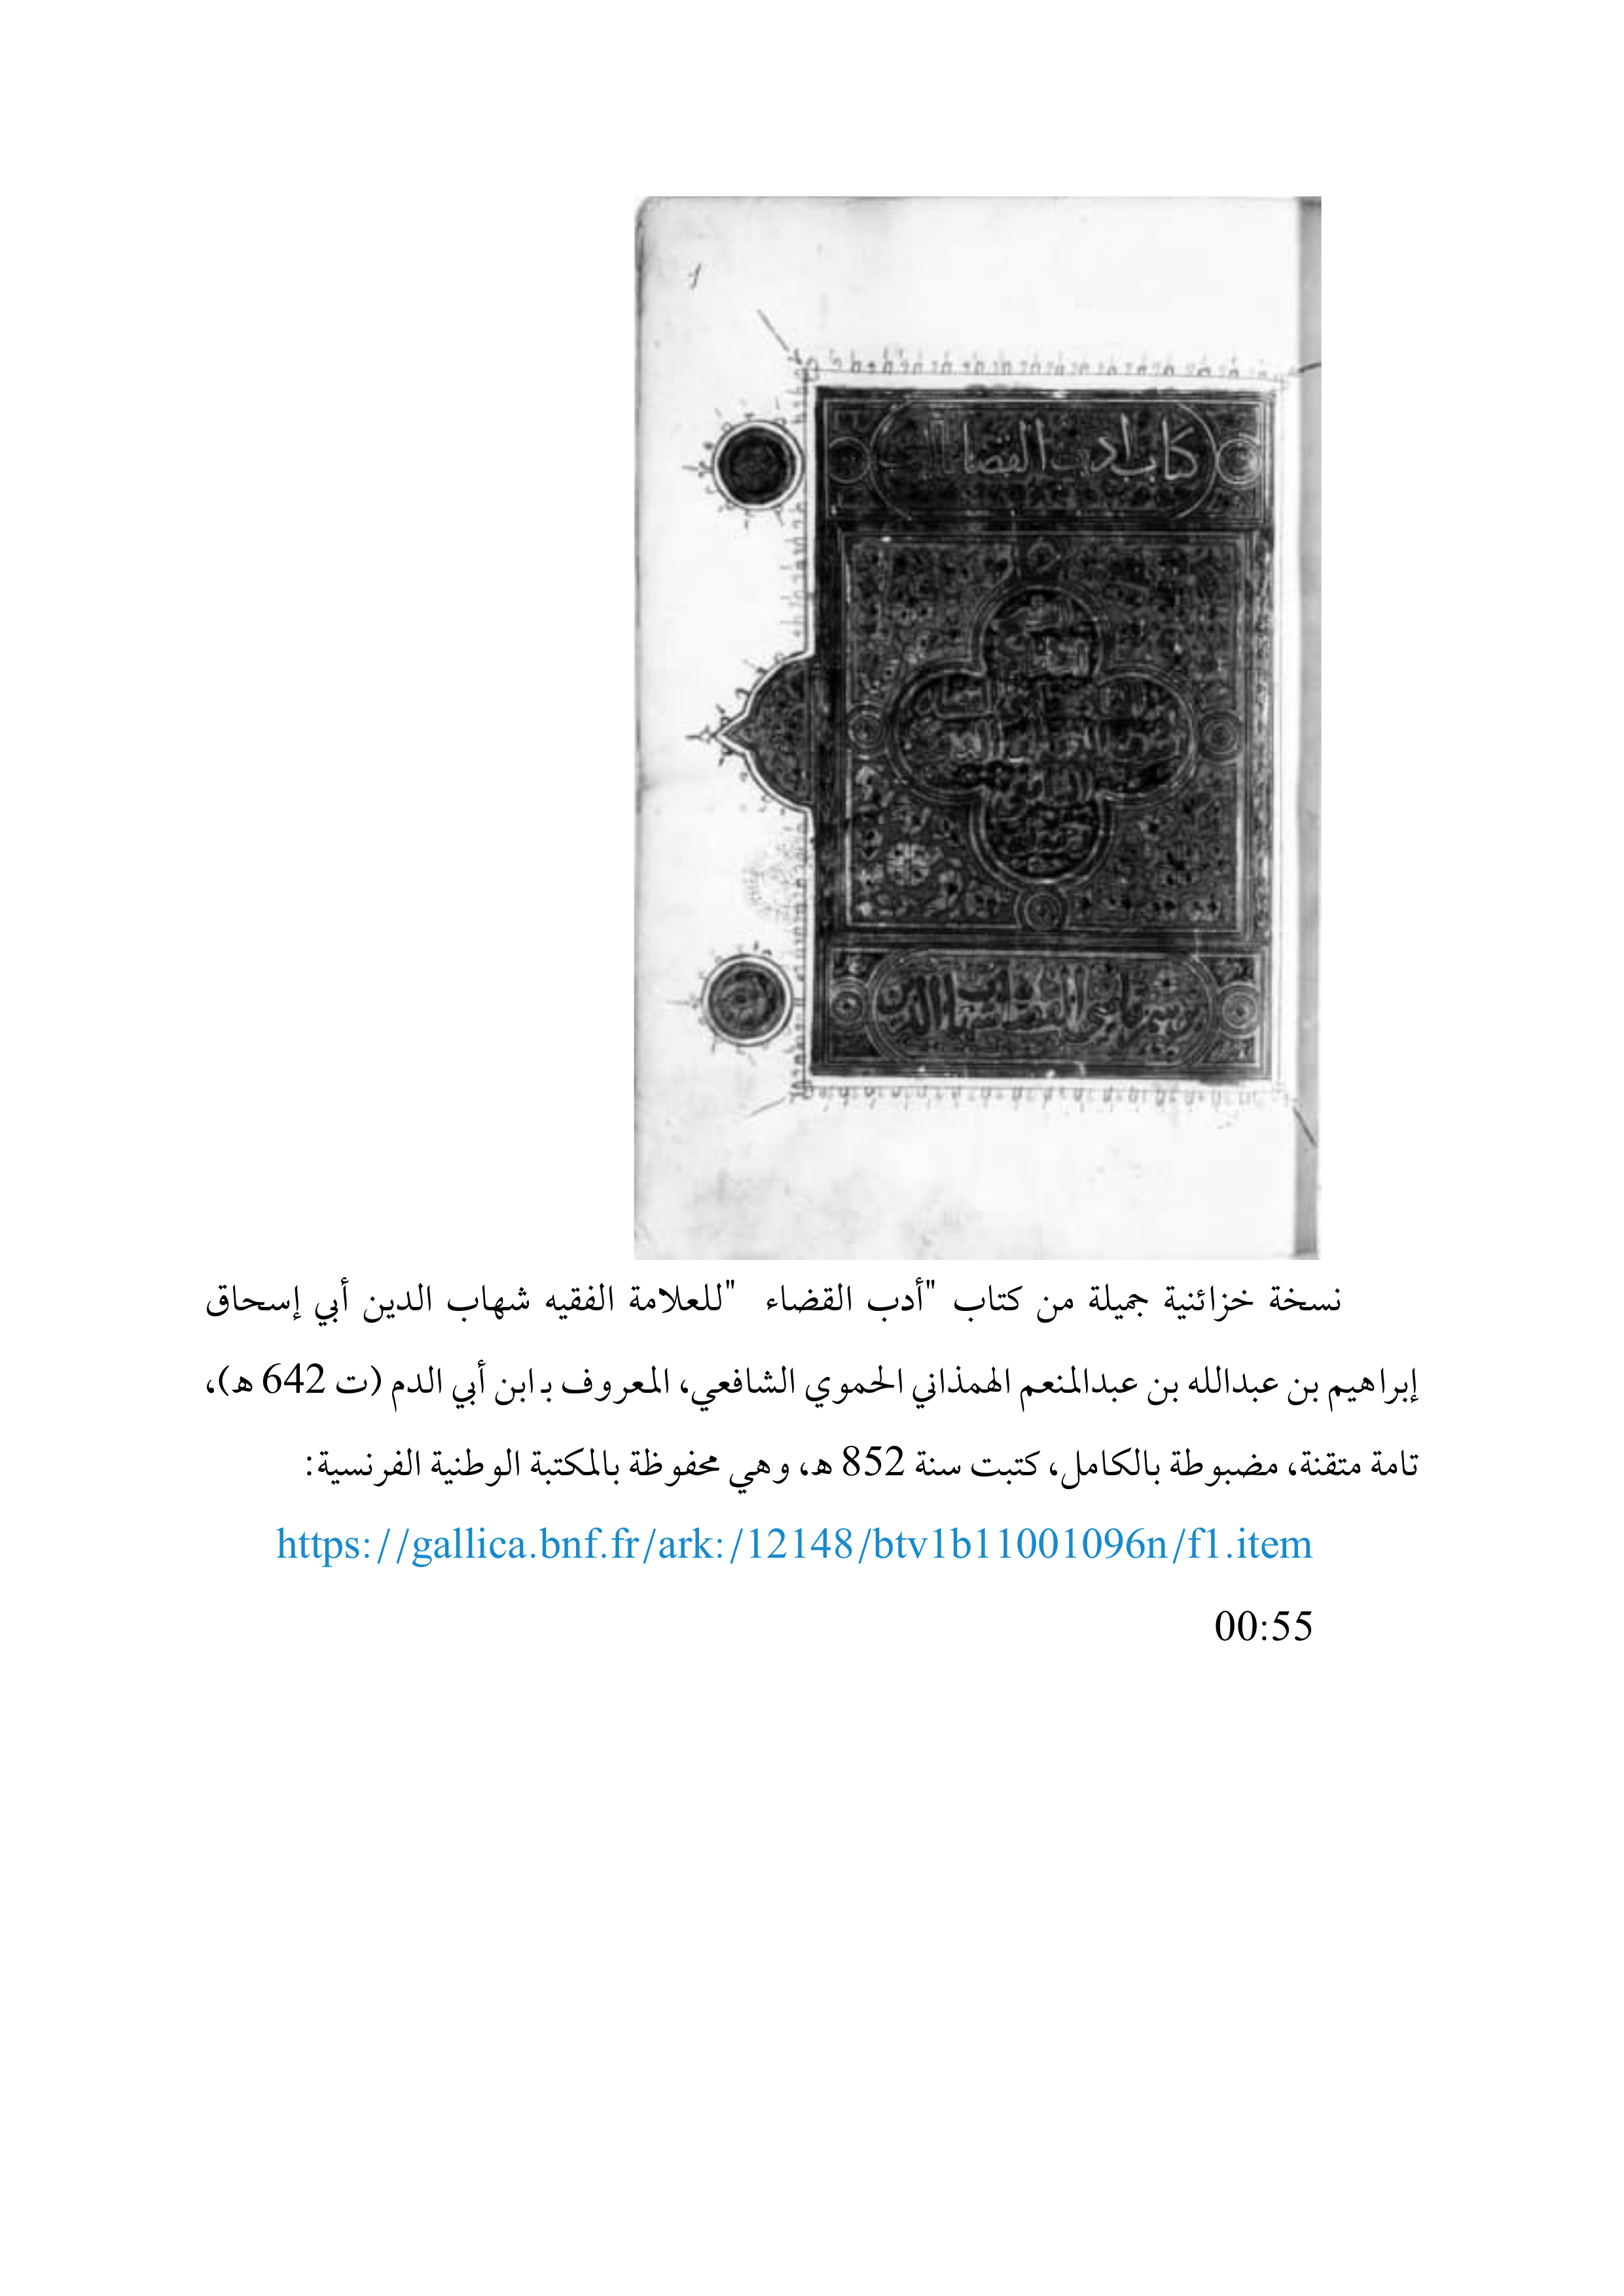 1
كتاب ادب القضا
نسخة خزائنية جميلة من كتاب "أدب القضاء "للعلامة الفقيه شهاب الدين أبي إسحاق
إبراهيم بن عبدالله بن عبدالمنعم الهمذاني الحموي الشافعي، المعروف بـ ابن أبي الدم (ت 642 هـ)،
تامة متقنة، مضبوطة بالكامل، كتبت سنة 852 هـ، وهي محفوظة بالمكتبة الوطنية الفرنسية:
https://gallica.bnf.fr/ark:/12148/btv1b11001096n/f1.item
00:55